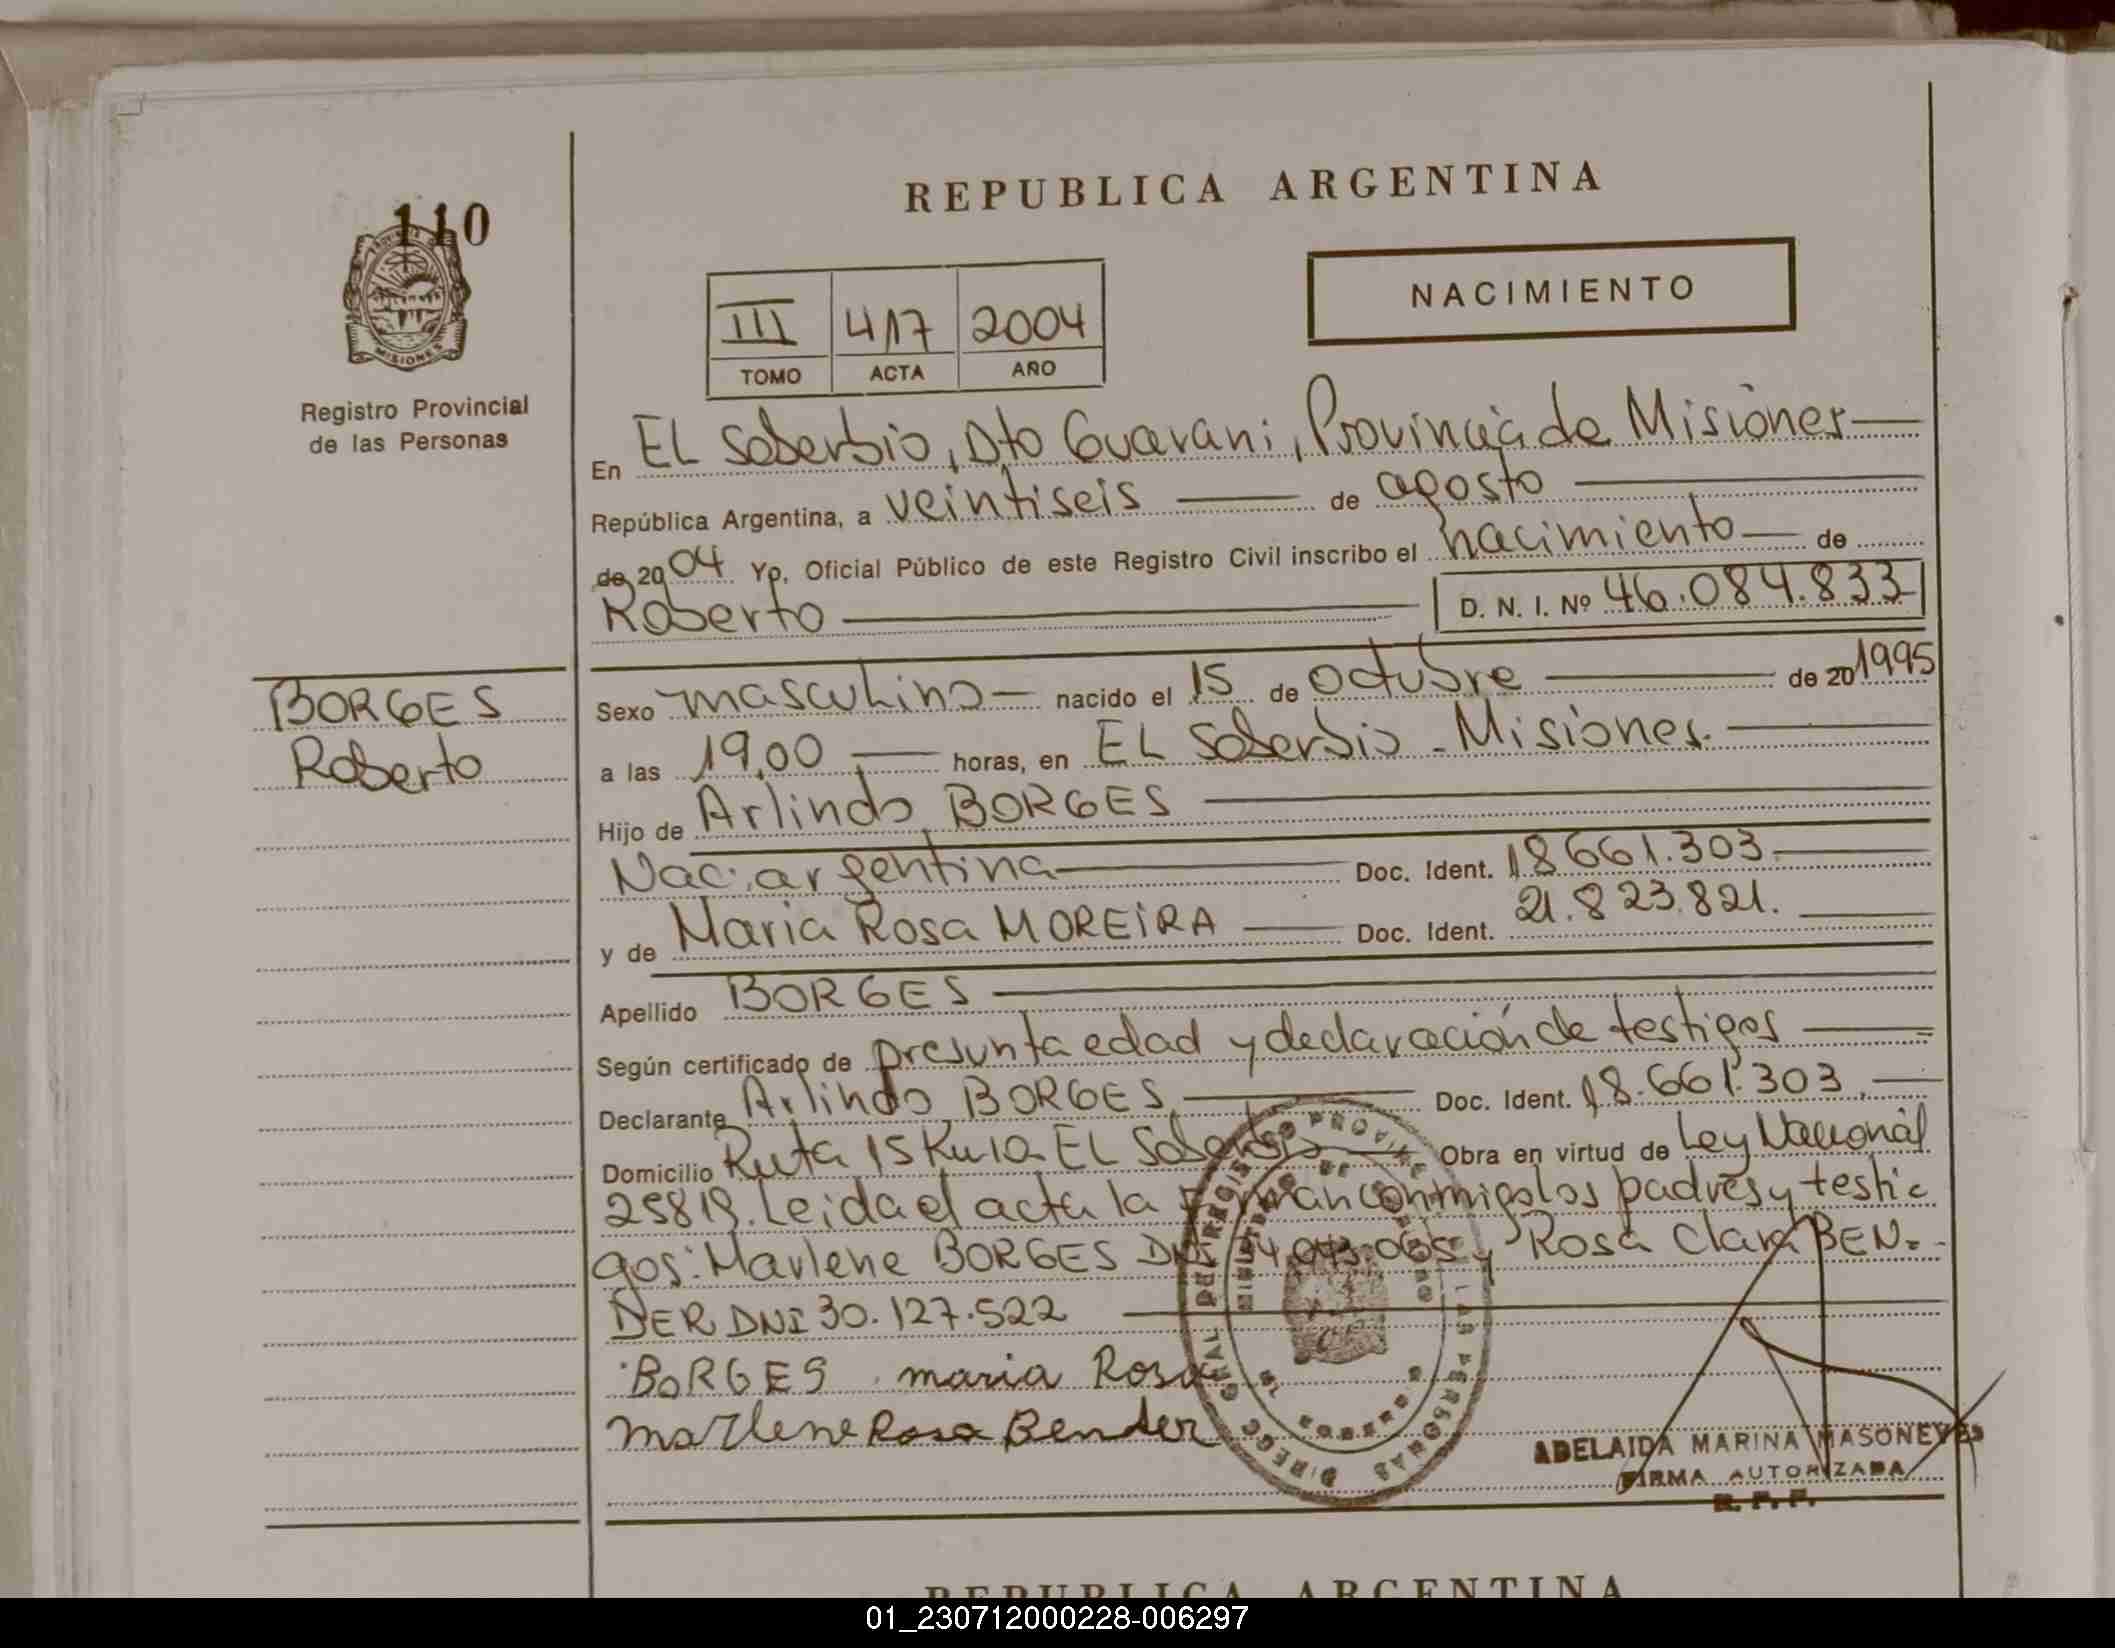 REPUBLICA ARGENTINA
110
PROVINCIA DE
MISIONES
Registro Provincial
de las Personas
III 417 2004
TOMO ACTA AÑO
NACIMIENTO
En EL Soberbio, Dto Guarani, Provincia de Misiones
República Argentina, a veintiseis de agosto
de 2004 Yo, Oficial Público de este Registro Civil inscribo el nacimiento de
Roberto D. N. I. Nº 46.084.833
BORGES
Roberto
Sexo masculino nacido el 15 de octubre de 20 1995
a las 19,00 horas, en EL Soberbio - Misiones.
Hijo de Arlindo BORGES
Nac. argentina Doc. Ident. 18.661.303
y de Maria Rosa MOREIRA Doc. Ident. 21.823.821.
Apellido BORGES
Según certificado de presunta edad y declaración de testigos
Declarante Arlindo BORGES Doc. Ident. 18.661.303
Domicilio Ruta 15 Km 10 EL Soberbio Obra en virtud de Ley Nacional
25819. Leida el acta la firman conmigo los padres y testi
gos: Marlene BORGES DNI y Rosa Clara BEN-
DER DNI 30.127.522
BORGES maria Rosa
marlene Rosa Bender
ADELAIDA MARINA MASONEVES
FIRMA AUTORIZADA
R. P. P.
REPUBLICA ARGENTINA
01_230712000228-006297